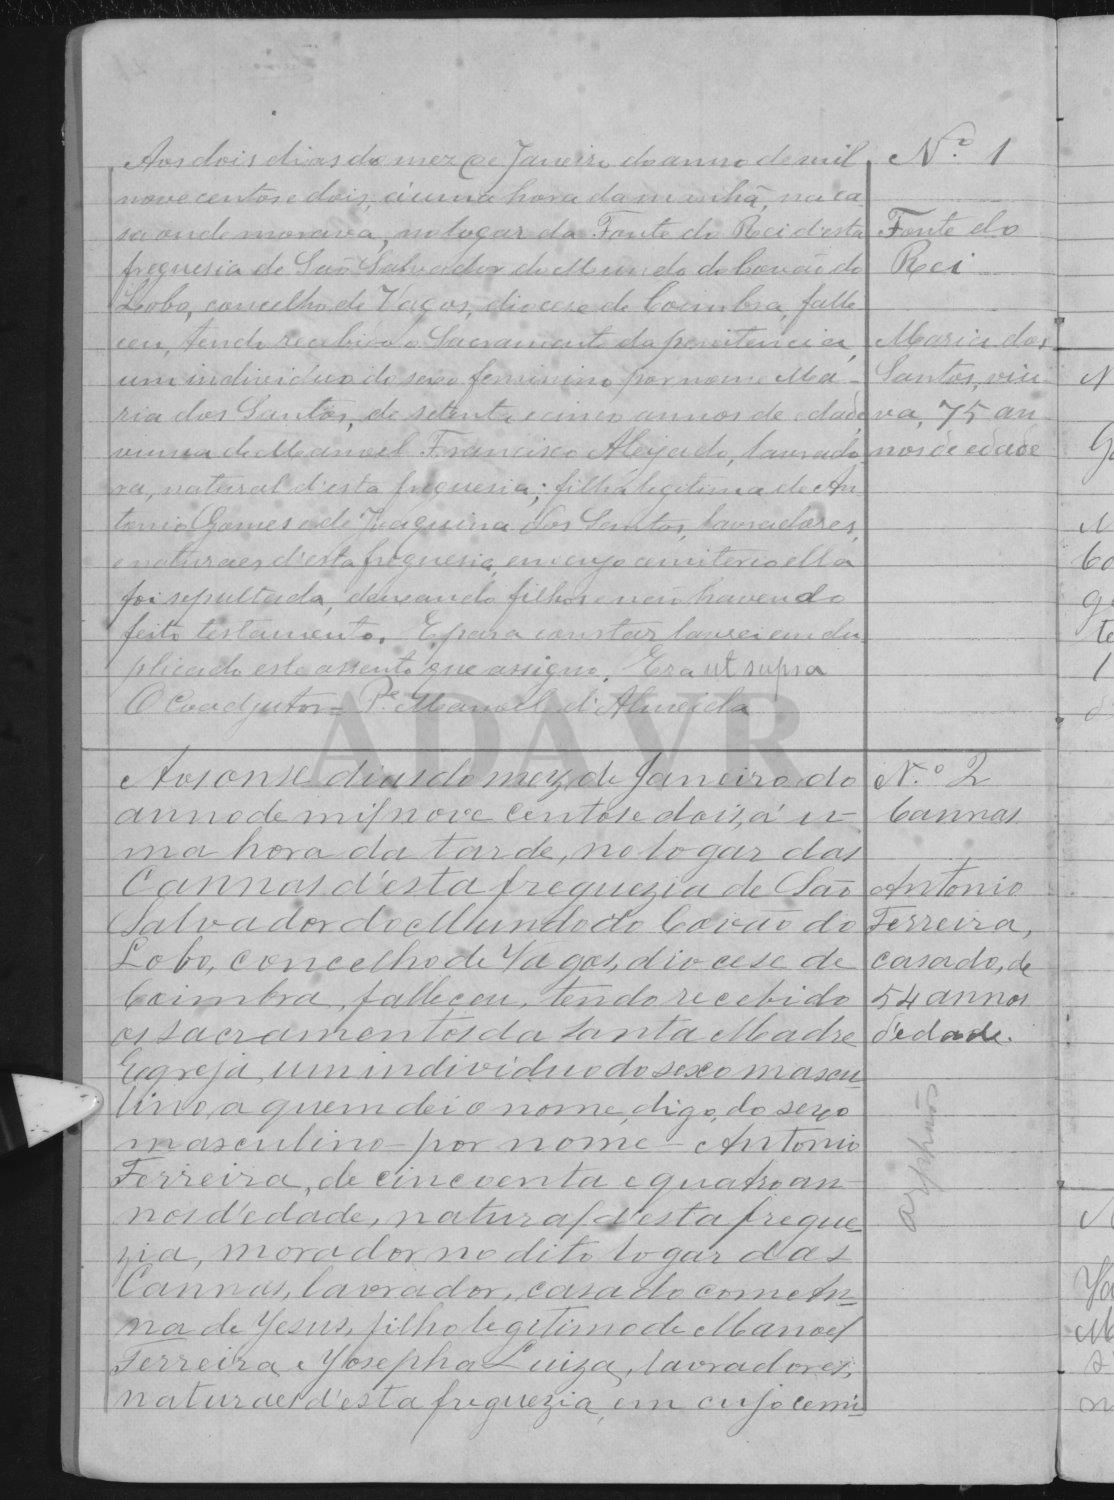 Nº 1
Fonte do
Rei
Maria dos
Santos, viu-
va, 75 an
nos de edade
Aos dois dias do mez de Janeiro do anno de mil
nove centos e dois, á uma hora da manhã, na ca
sa onde morava, no logar da Fonte do Rei d'esta
freguesia de São Salvador do Mundo do Covão do
Lobo, concelho de Vagos, diocese de Coimbra, falle
ceu, tendo recebido o Sacramento da penitencia,
um individuo do sexo feminino por nome Ma-
ria dos Santos, de setenta e cinco annos de edade,
viuva de Manoel Francisco Aleijado, lavrado
ra, natural d'esta freguesia; filha legitima de An
tonio Gomes e de Joaquina dos Santos, lavradores,
e naturaes d'esta freguesia, em cujo cemiterio ella
foi sepultada, deixando filhos e não havendo
feito testamento. E para constar lavrei em du
plicado este assento que assigno. Era ut supra
O Coadjutor = Pe. Manoel d'Almeida
ADAVR
N.º 2
Cannas
Antonio
Ferreira,
casado, de
54 annos
d'edade.
orphãos
Aos onse dias do mez de Janeiro do
anno de mil nove centos e dois, á u-
ma hora da tarde, no logar das
Cannas d'esta freguezia de São
Salvador do Mundo do Covão do
Lobo, concelho de Vagos, diocese de
Coimbra, falleceu, tendo recebido
os sacramentos da Santa Madre
Egreja, um individuo do sexo mascu
lino, a quem dei o nome, digo, do sexo
masculino - por nome - Antonio
Ferreira, de cincoenta e quatro an
nos d'edade, natural d'esta fregue
zia, morador no dito logar das
Cannas, lavrador, casado com An-
na de Jesus, filho legitimo de Manoel
Ferreira e Josepha Luiza, lavradores,
naturaes d'esta freguezia, em cujo cemi-